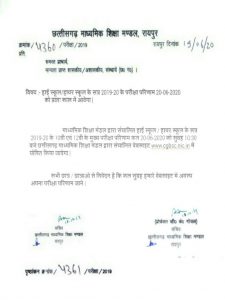 छत्तीसगढ़ माध्यमिक शिक्षा मण्डल, रायपुर
क्रमांक / 4360 / परीक्षा / 2019 रायपुर दिनांक 19/06/20
प्रति,
समस्त प्राचार्य,
मान्यता प्राप्त शासकीय/अशासकीय, संस्थायें (छ0 ग0)
विषय :- हाई स्कूल/हायर स्कूल के सत्र 2019-20 के परीक्षा परिणाम 20-06-2020
माध्यमिक शिक्षा मंडल द्वारा संचालित हाई स्कूल / हायर स्कूल के सत्र
2019-20 के 10वीं एवं 12वीं के मुख्य परीक्षा परिणाम कल 20.06.2020 को सुबह 10:30
बजे छत्तीसगढ़ माध्यमिक शिक्षा मंडल द्वारा संचालित वेबसाइट www.cgbse.nic.in में
घोषित किया जायेगा।
सभी छात्र / छात्राओं से निवेदन है कि कल सुबह हमारे वेबसाइट में अवश्य
अपना परीक्षा परिणाम जाने।
सचिव
छत्तीसगढ़ माध्यमिक शिक्षा मण्डल
रायपुर
सचिव
छत्तीसगढ़ माध्यमिक शिक्षा मण्डल
रायपुर
पृष्ठांकन क्रमांक / 4361 / परीक्षा / 2019